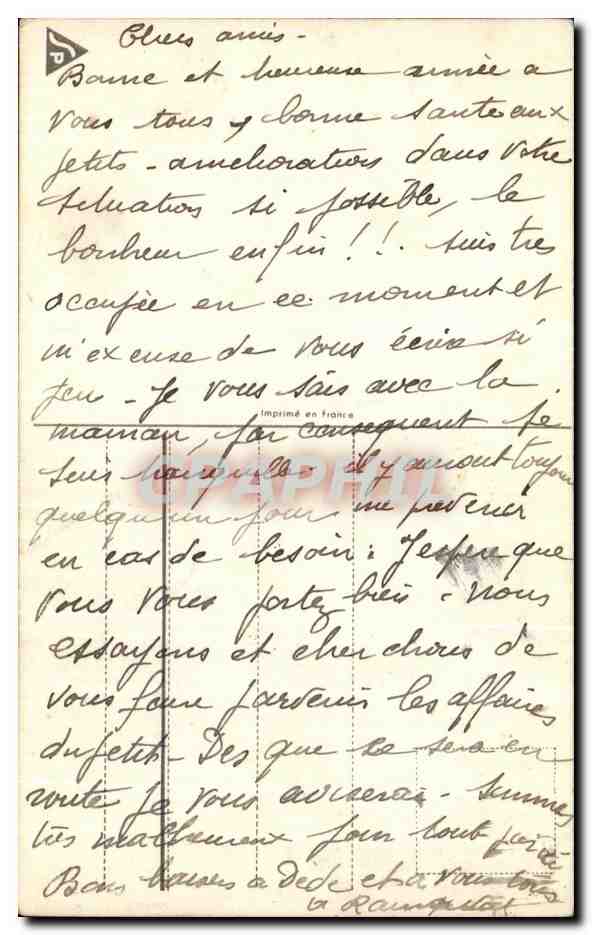 Chers amis -
Bonne et heureuse année a
vous tous, bonne santé aux
petits - améliorations dans votre
situation si possible, le
bonheur enfin!!. suis très
occupée en ce moment et
m'excuse de vous écrire si
peu - Je vous sais avec la
Imprimé en France
maman, par consequent je
suis tranquille - il y auront toujours
quelqu'un pour me prevenir
en cas de besoin : J'espere que
vous vous portez bien. Nous
essayons et cherchons de
vous faire parvenir les affaires
du petit - Des que ce sera en
route je vous aviserai - Sommes
très malheureux pour tout
Bons baisers a Dédé et a vous tous
SP
CPAPHIL